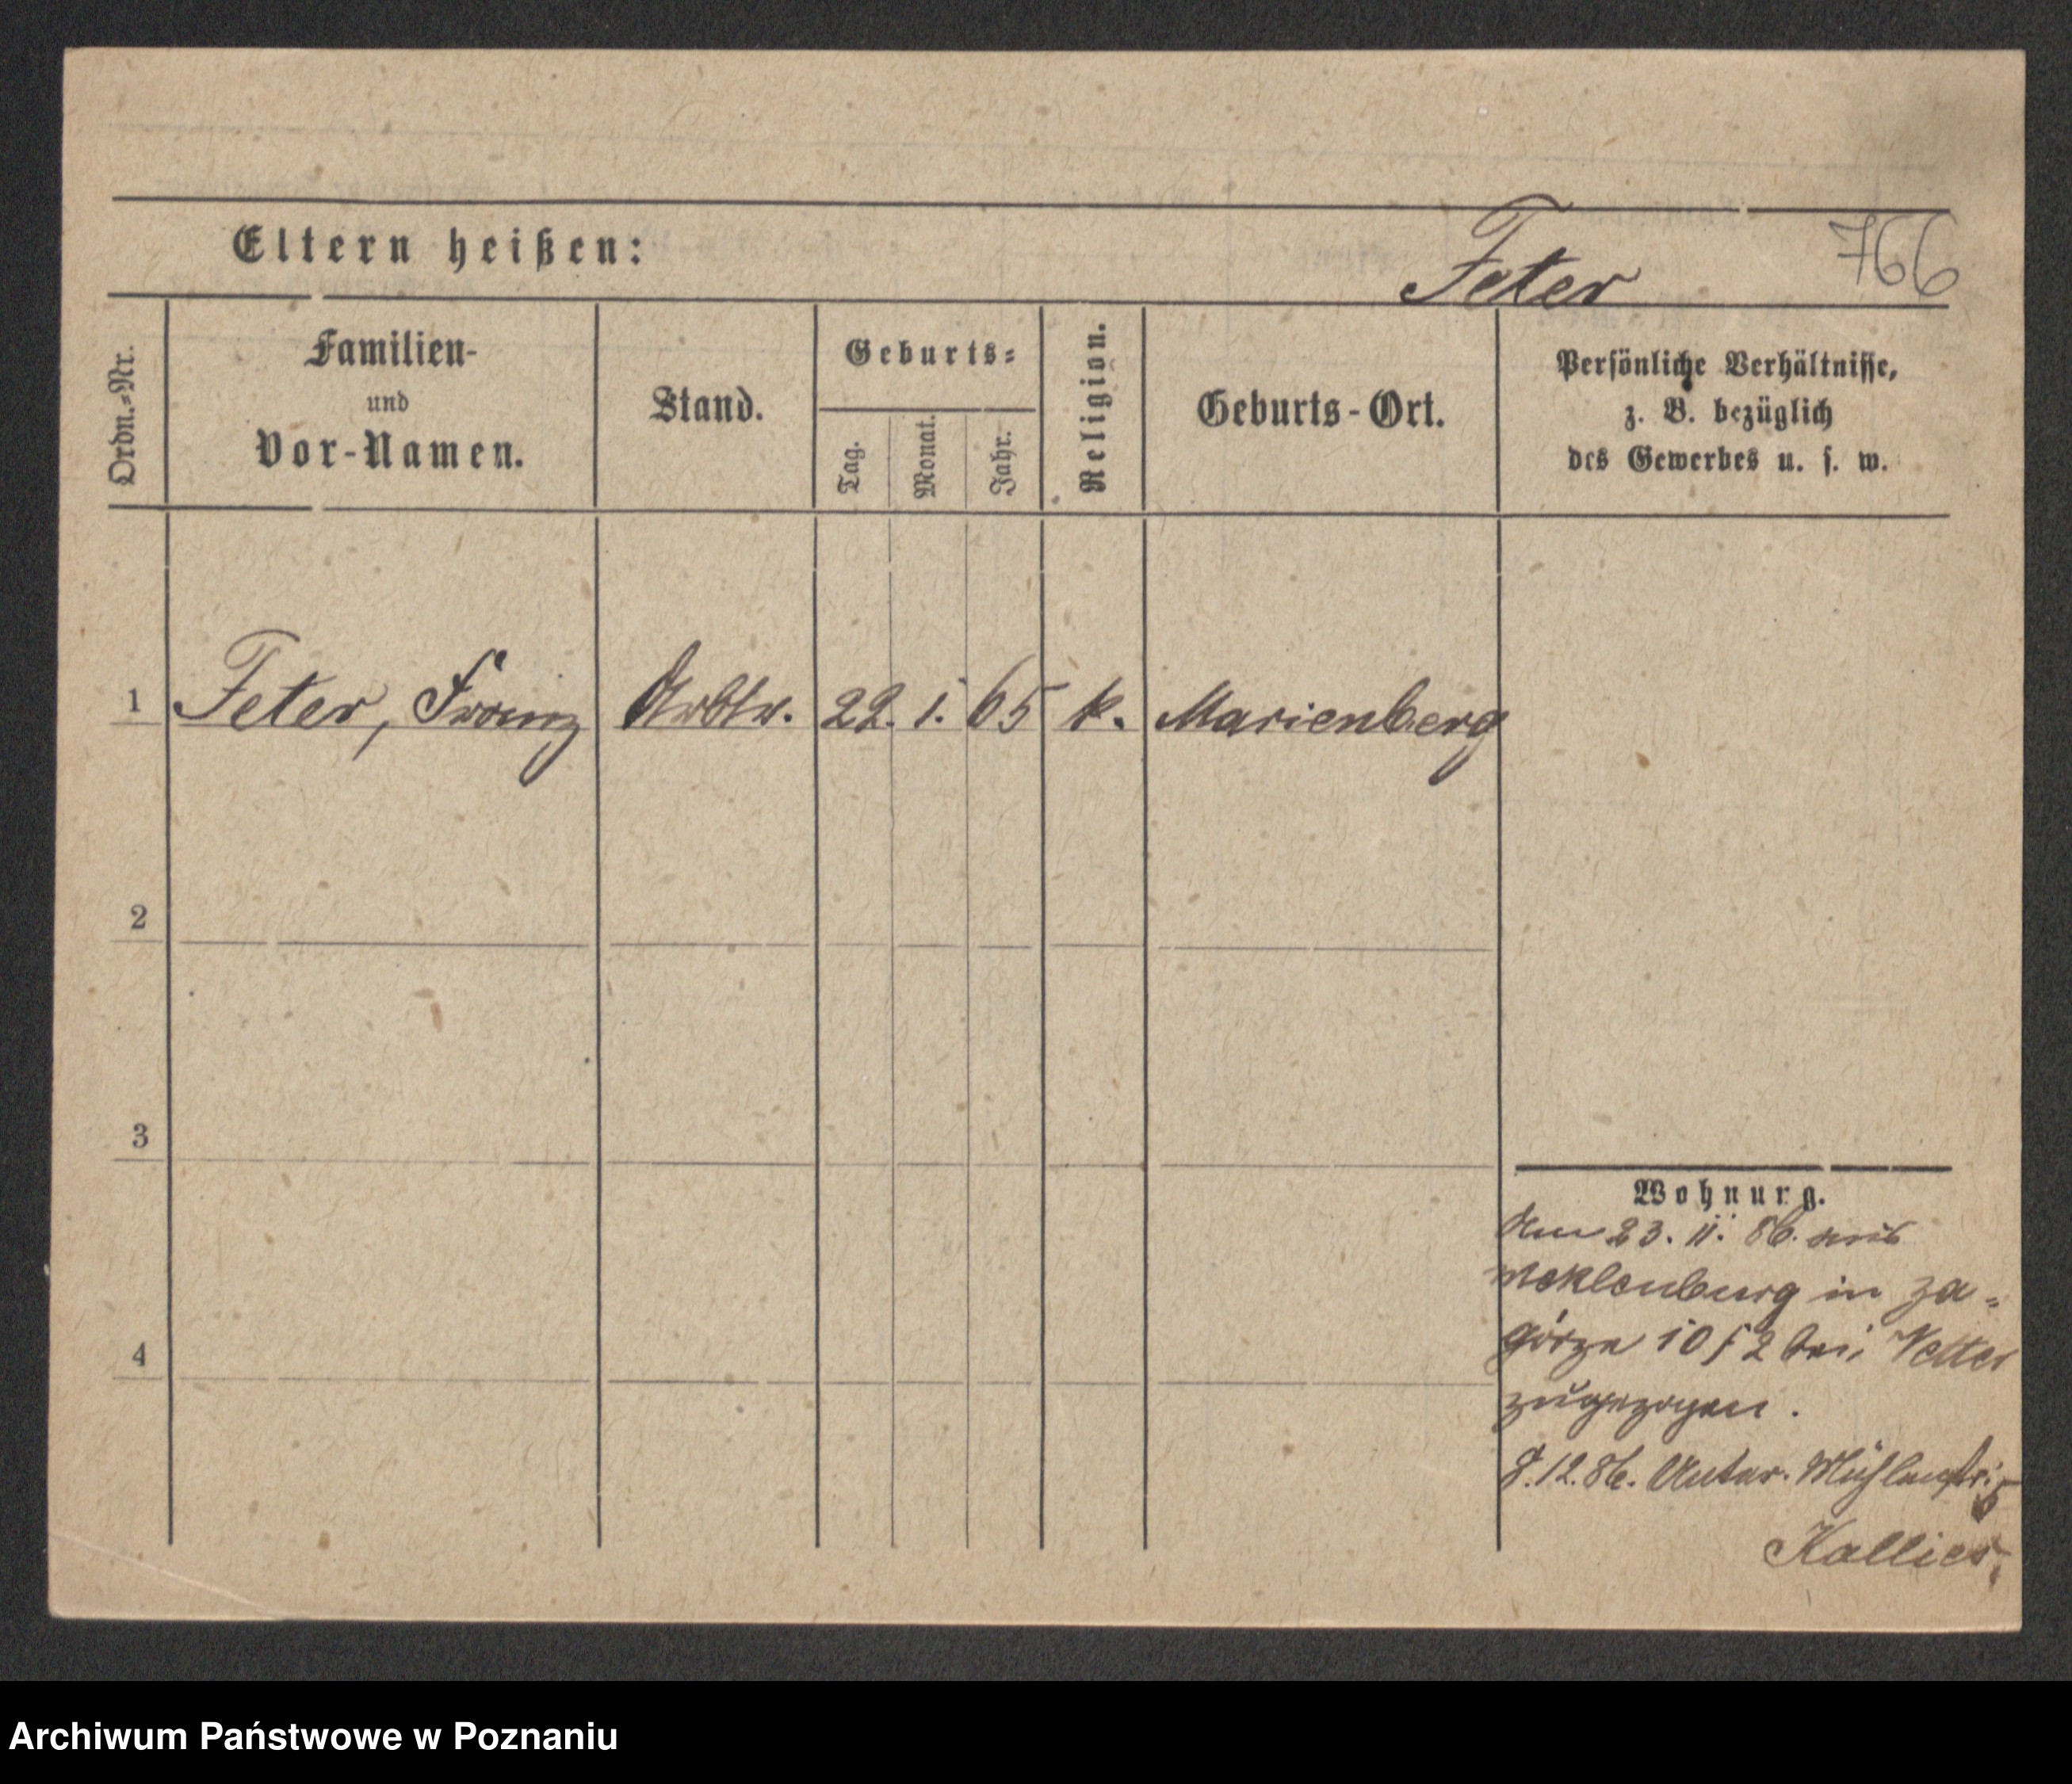 Eltern heißen:
Feter 766
Ordn.=Nr.
Familien-
und
Vor-Namen.
Stand.
Geburts=
Tag.
Monat.
Jahr.
Religion.
Geburts-Ort.
Persönliche Verhältnisse,
z. B. bezüglich
des Gewerbes u. s. w.
1 Feter, Franz Arbtr. 22. 1. 65 k. Marienberg
2
3
4
Wohnung.
Am 23. 11. 86. aus
Meklenburg in Za=
górze 10/2 bei Vetter
zugezogen.
8.12.86. Unter. Mühlenstr. 5
Kallies.
Archiwum Państwowe w Poznaniu